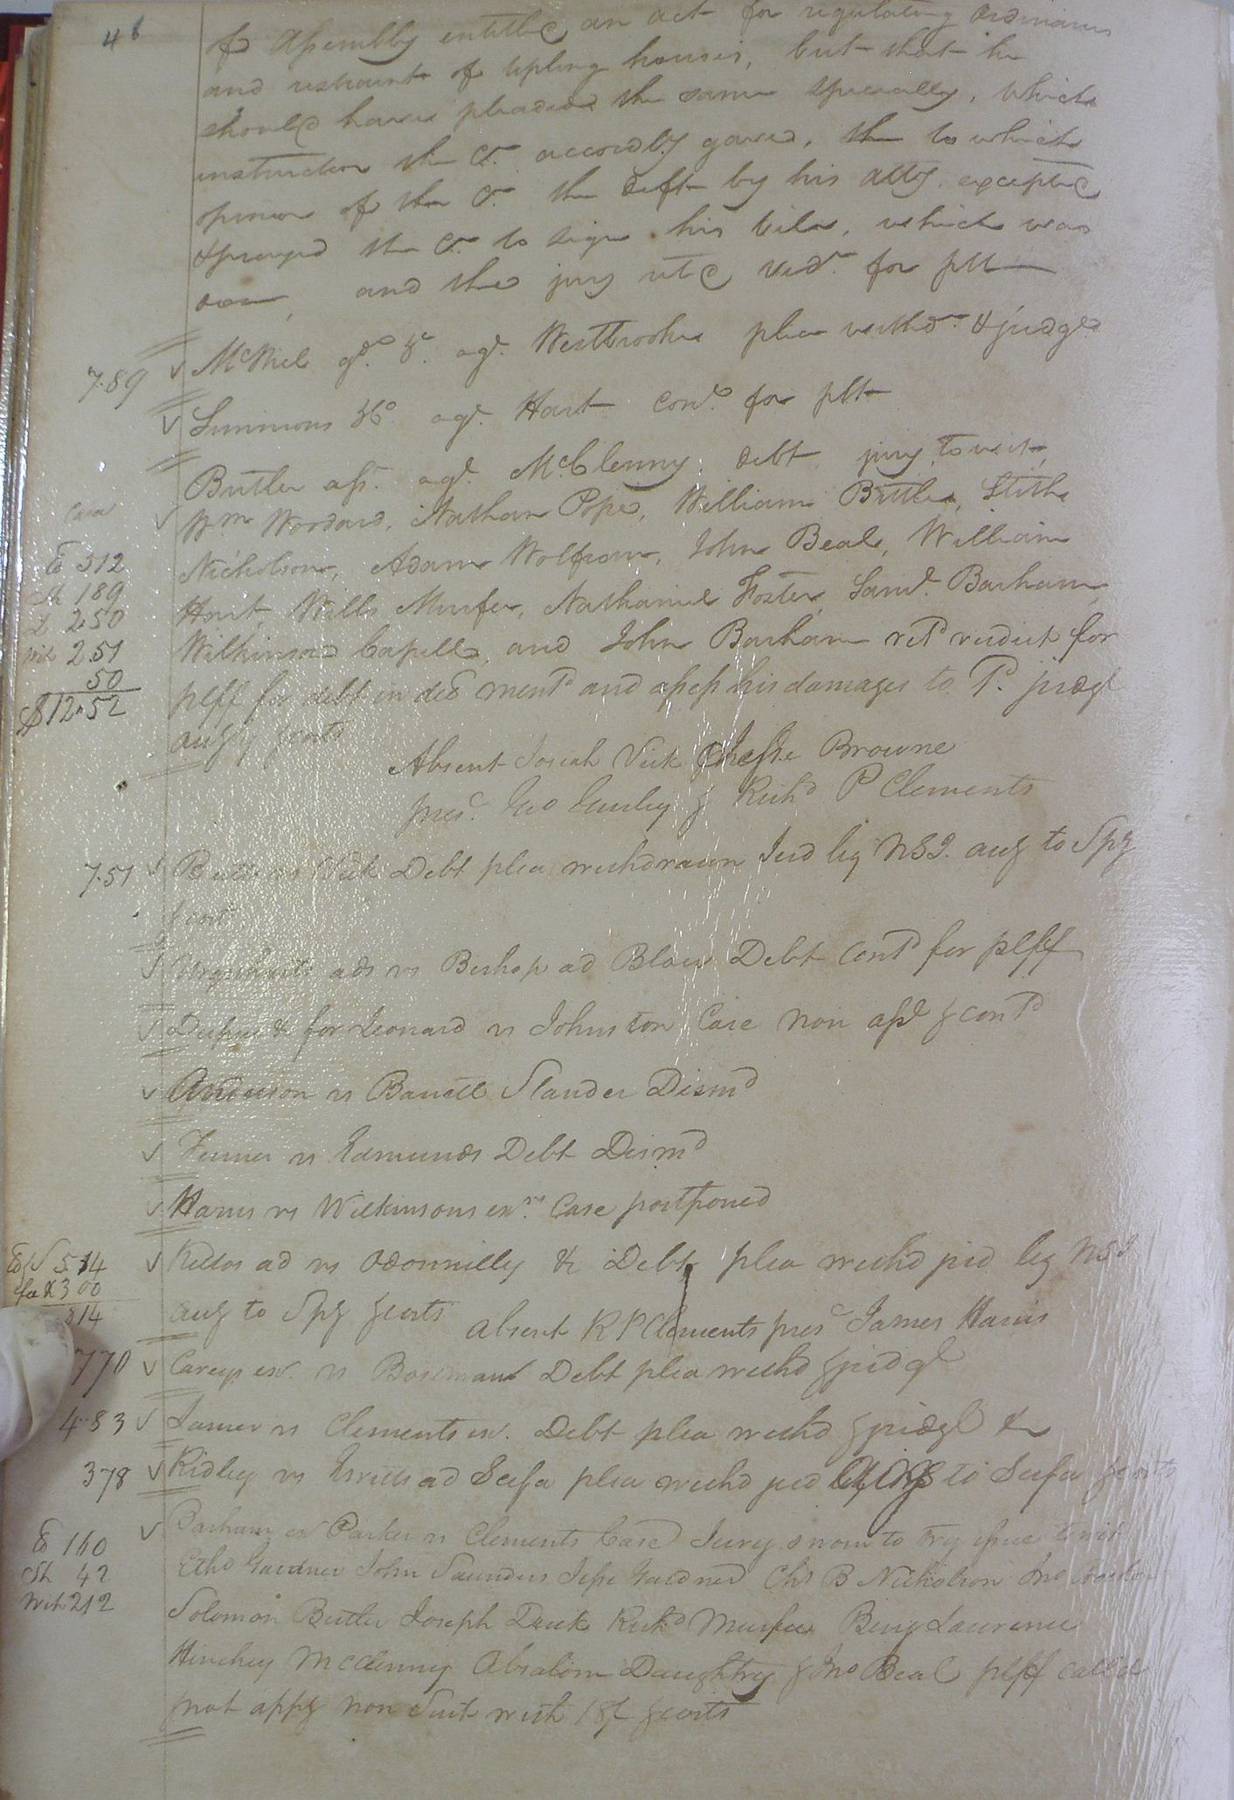 46
of Assembly entitled an act for regulating Ordinaries
and restraint of tipling houses, but that he
should have pleaded the same specially, which
instruction the Ct. accordly gave, the to which
opinion of the Ct. the deft by his atty. excepted
& prayed the Ct. to sign his bill, which was
done, and the jury retd verdt. for plt
7.89 McNiel agt. Westbrooke plea withdn. & judgt
Simmons &c. agt. Hart Cond. for plt
Butler ass. agt. McClenny debt jury, to wit,
Wm Woodard, Nathan Pope, William Britle, Stith
Nicholson, Adam Wolfrom, John Beal, William
512
Hart, Wills Murfee, Nathaniel Foster, Saml. Barham,
189
2.50
Wilkinson Capell, and John Barham retd verdict for
2.51
plff for debt in decn mentd and assess his damages to 1d. judgt
50
$12.52
Absent Josiah Vick & Jesse Browne
presd. Jno Gurley & Richd P Clements
7.51 Butts vs Vick Debt plea withdrawn Jud lig NSI. aug to Spg
& cost
Urquharts ads vs Bishop ad Blow Debt Contd for plff
Dupuy & for Leonard vs Johnston Case Non asst & contd
Anderson vs Barrett Slander Dismd
Turner vs Edmunds Debt Dismd
Harris vs Wilkinsons exrs. Case postponed
5.14
Kellos ad vs Odonnelly & Debt plea withd jud lig NSI
300
814
aug to Spg & costs Absent R P Clements presd James Harris
770 Careys ex. vs Boseman Debt plea withd & judgt
4.83 vs Clements ex. Debt plea withd & judgt &c
378 Ridley vs ad Scifa plea withd jud Agg to Scifa & costs
160
Parham ex Parker vs Clements Case Jury sworn to try issue to wit
42
Gardner John Saunders Jesse Gardner Chs B Nicholson Jno
212
Solomon Butler Joseph Duck Richd Murfee Benj Lawrence
Hinchey McClenny Absalom Daughtry & Jno Beal plff called
not appg non Suit with & costs